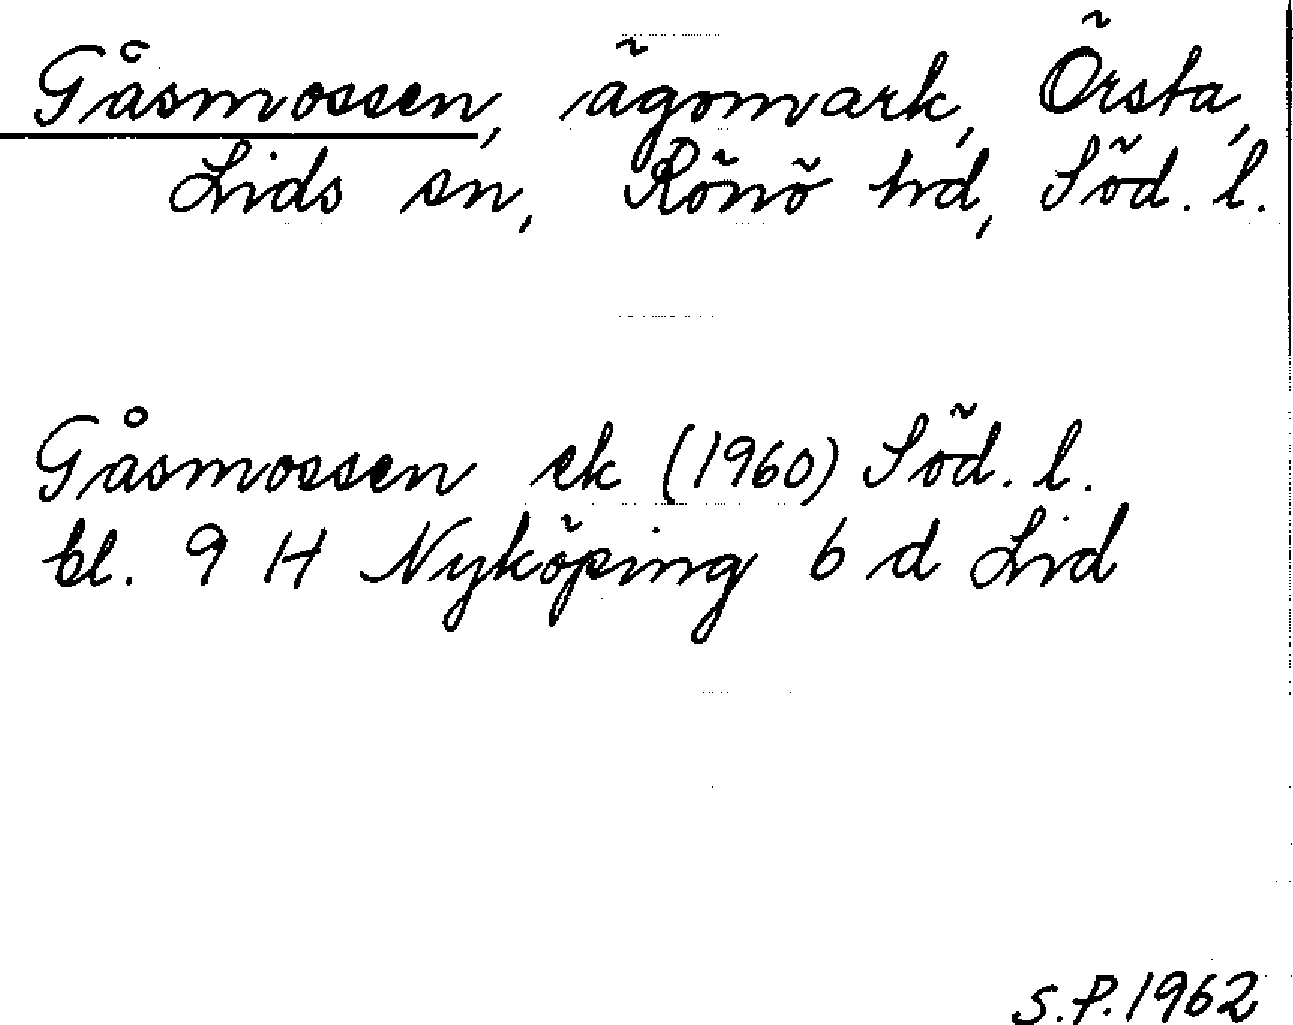 Gåsmossen, ägomark, Örsta,
Lids sn, Rönö hd, Söd. l.
Gåsmossen ek (1960) Söd. l.
bl. 9 H Nyköping 6 d Lid
S.P. 1962